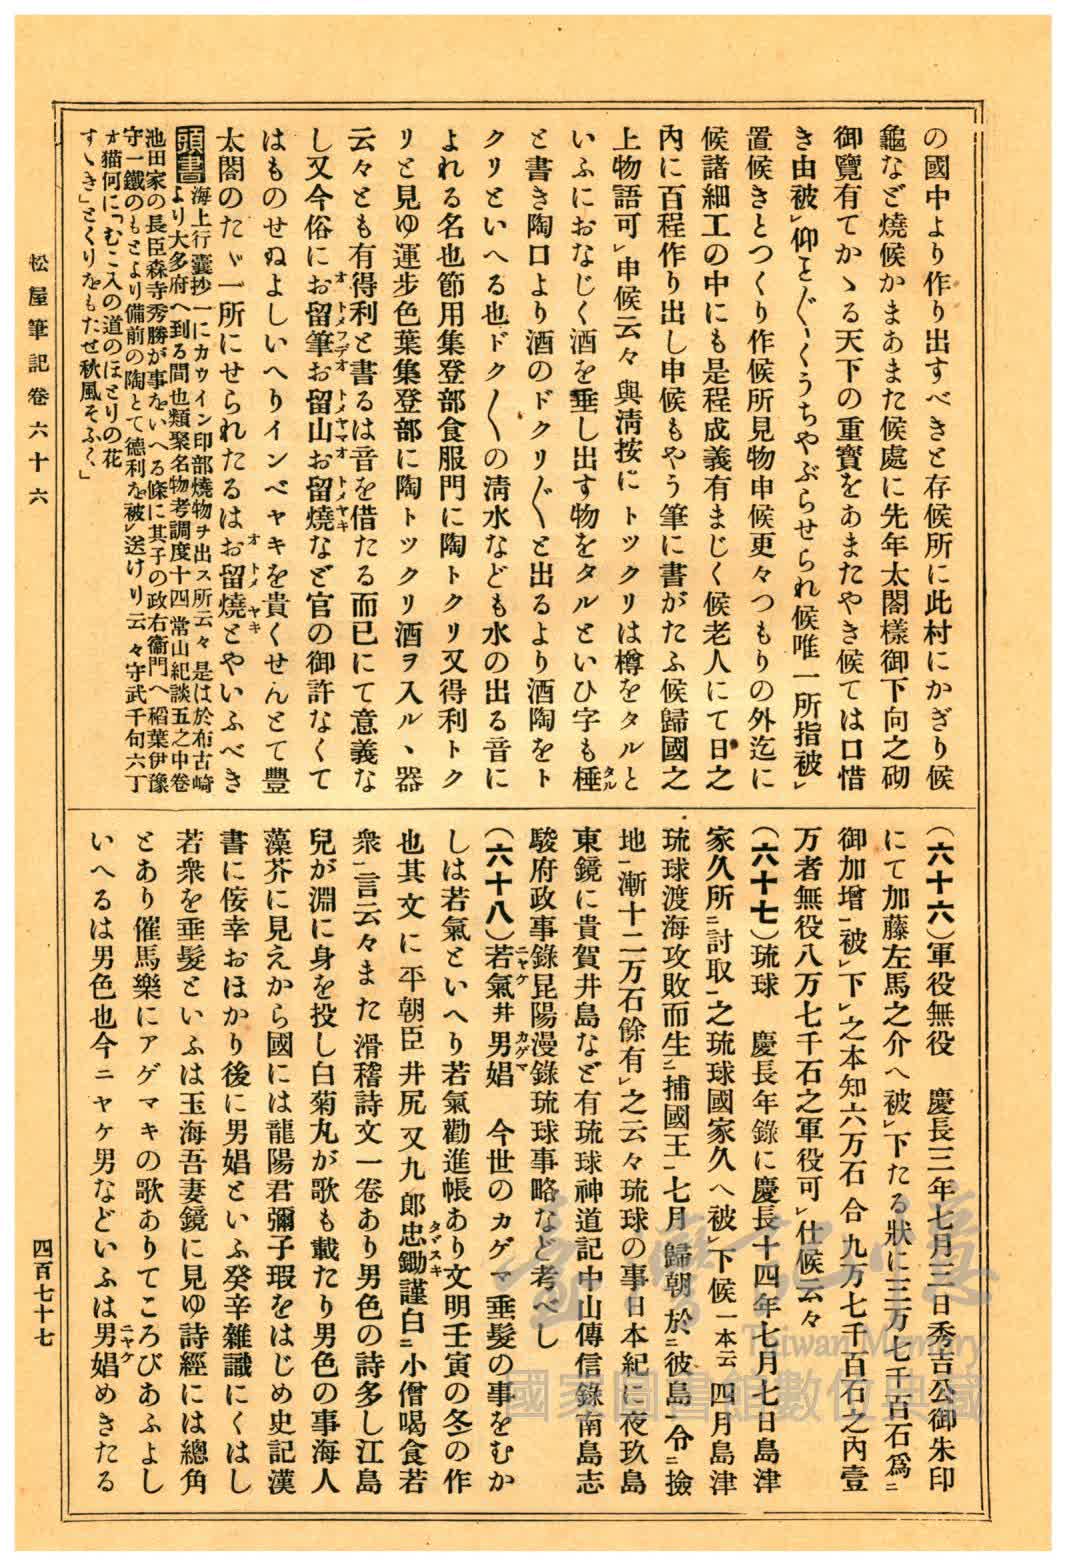 の國中より作り出すべきと存候所に此村にかぎり候
龜など燒候かまあまた候處に先年太閤樣御下向之砌
御覽有てかゝる天下の重寶をあまたやき候ては口惜
き由被㆑仰こと〲くうちやぶらせられ候唯一所指被㆑
置候きとつくり作候所見物申候更々つもりの外迄に
候諸細工の中にも是程成義有まじく候老人にて日之
內に百程作り出し申候もやう筆に書がたふ候歸國之
上物語可㆑申候云々 與淸按にトツクリは樽をタルと
いふにおなじく酒を垂し出す物をタルといひ字も棰タル
と書き陶口より酒のドクリ〲と出るより酒陶をト
クリといへる也ドク〱の淸水なども水の出る音に
よれる名也節用集登部食服門に陶トクリ又得利トク
リと見ゆ運步色葉集登部に陶トツクリ酒ヲ入ルヽ器
云々とも有得利と書るは音を借たる而已にて意義な
し又今俗にお留筆オトメフデお留山オトメヤマお留燒オトメヤキなど官の御許なくて
はものせぬよしいへりインベヤキを貴くせんとて豐
太閤のたゞ一所にせられたるはお留燒オトメヤキとやいふべき
頭書 海上行囊抄一にカウイン印部燒物ヲ出ス所云々是は於布古崎
より大多府へ到る間也類聚名物考調度十四常山紀談五之中卷
池田家の長臣森寺秀勝が事をいへる條に其子の政右衞門へ稻葉伊豫
守一鐵のもとより備前の陶とて德利を被㆑送けり云々守武千句六丁
オ猫何に「むこ入の道のほとりの花
すゝき」とくりをもたせ秋風そふく」
(六十六)軍役無役 慶長三年七月三日秀吉公御朱印
にて加藤左馬之介へ被㆑下たる狀に三万七千百石爲㆓
御加增㆒被㆑下㆑之本知六万石合九万七千百石之內壹
万者無役八万七千石之軍役可㆑仕候云々
(六十七)琉球 慶長年錄に慶長十四年七月七日島津
家久所㆓討取㆒之琉球國家久へ被㆑下候一本云四月島津
琉球渡海攻敗而生㆓捕國王㆒七月歸朝於㆓彼島㆒令㆓撿
地㆒漸十二万石餘有㆑之云々琉球の事日本紀に夜玖島
東鏡に貴賀井島など有琉球神道記中山傳信錄南島志
駿府政事錄昆陽漫錄琉球事略など考べし
(六十八)若氣ニヤケ井男娼カゲマ 今世のカゲマ垂髮の事をむか
しは若氣といへり若氣勸進帳あり文明壬寅の冬の作
也其文に平朝臣井尻又九郎忠鋤タヾスキ謹白㆓小僧喝食若
衆㆒言云々また滑稽詩文一卷あり男色の詩多し江島
兒が淵に身を投し白菊丸が歌も載たり男色の事海人
藻芥に見えから國には龍陽君彌子瑕をはじめ史記漢
書に侫幸おほかり後に男娼といふ癸辛雜識にくはし
若衆を垂髮といふは玉海吾妻鏡に見ゆ詩經には總角
とあり催馬樂にアゲマキの歌ありてころびあふよし
いへるは男色也今ニヤケ男などいふは男娼ニヤケめきたる
松屋筆記卷六十六
四百七十七
臺灣記憶
Taiwan Memory
國家圖書館數位典藏